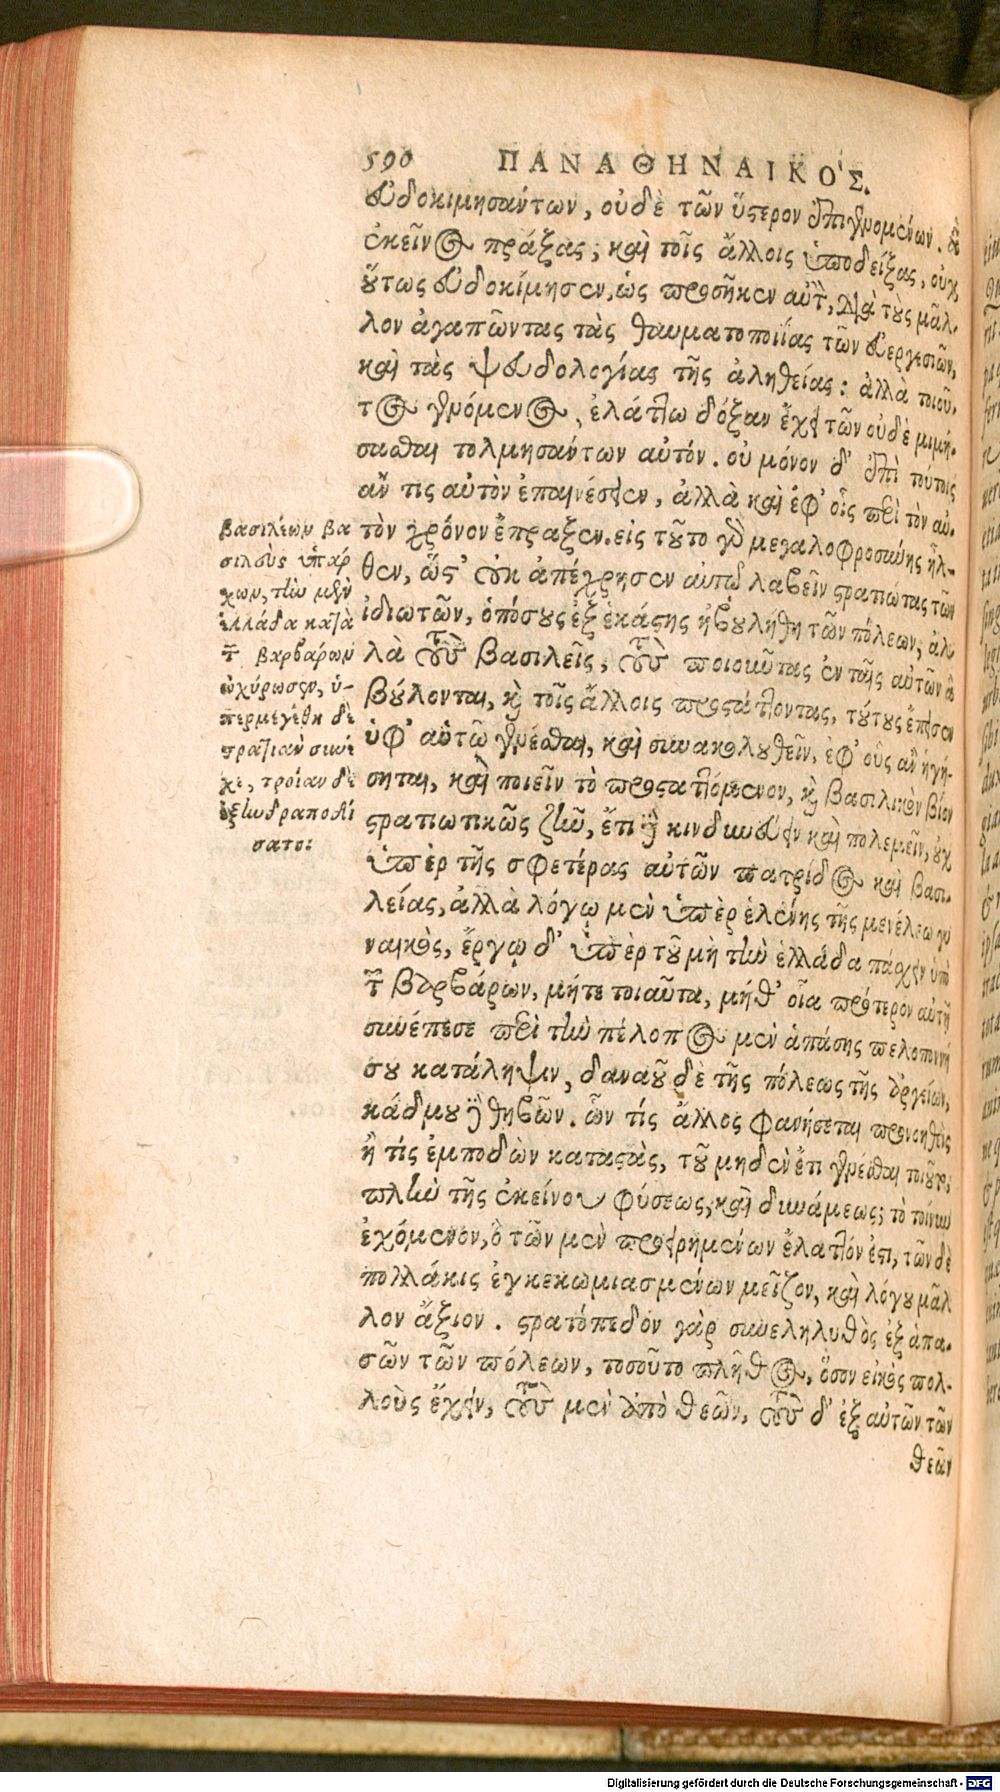 590 ΠΑΝΑΘΗΝΑΙΚΟΣ.
εὐδοκιμησάντων, οὐδὲ τῶν ὕστερον ἐπιγινομένων. ἃ
ἐκεῖνος πράξας, καὶ τοῖς ἄλλοις ὑποδείξας, οὐχ
οὕτως εὐδοκίμησεν, ὡς προσῆκεν αὐτῷ, διὰ τοὺς μᾶλ-
λον ἀγαπῶντας τὰς θαυματοποιΐας τῶν εὐεργεσιῶν,
καὶ τὰς ψευδολογίας τῆς ἀληθείας: ἀλλὰ τοιοῦ-
τος γενόμενος, ἐλάττω δόξαν ἔχει τῶν οὐδὲ μιμή-
σασθαι τολμησάντων αὐτόν. οὐ μόνον δ' ἐπὶ τούτοις
ἄν τις αὐτὸν ἐπαινέσειεν, ἀλλὰ καὶ ἐφ' οἷς περὶ τὸν αὐ-
τὸν χρόνον ἔπραξεν. εἰς τοῦτο γὰρ μεγαλοφροσύνης ἦλ-
θεν, ὥστ' οὐκ ἀπέχρησεν αὐτῷ λαβεῖν στρατιώτας τῶν
ἰδιωτῶν, ὁπόσους ἐξ ἑκάστης ἠβουλήθη τῶν πόλεων, ἀλ
λὰ τοὺς βασιλεῖς, τοὺς ποιοῦντας ἐν ταῖς αὐτῶν ἃ
βούλονται, καὶ τοῖς ἄλλοις προστάττοντας, τούτους ἔπεισεν
ὑφ' αὑτῷ γενέσθαι, καὶ συνακολουθεῖν, ἐφ' οὓς ἂν ἡγῆ-
σηται, καὶ ποιεῖν τὸ προσταττόμενον, καὶ βασιλικὸν βίον
στρατιωτικῶς ζῆν, ἔτι δὲ κινδυνεύειν καὶ πολεμεῖν, οὐχ
ὑπὲρ τῆς σφετέρας αὐτῶν πατρίδος καὶ βασι-
λείας, ἀλλὰ λόγῳ μὲν ὑπὲρ ἑλένης τῆς μενέλεω γυ
ναικὸς, ἔργῳ δ' ὑπὲρ τοῦ μὴ τὴν ἑλλάδα πάσχειν ὑπὸ
τῶν βαρβάρων, μήτε τοιαῦτα, μήθ' οἷα πρότερον αὐτῇ
συνέπεσε περὶ τὴν πέλοπος μὲν ἁπάσης πελοποννή
σου κατάληψιν, δαναοῦ δὲ τῆς πόλεως τῆς ἀργείων,
κάδμου δὲ θηβῶν. ὧν τίς ἄλλος φανήσεται προνοηθεὶς
ἢ τίς ἐμποδὼν καταστὰς, τοῦ μηδὲν ἔτι γενέσθαι τοιοῦτον,
πλὴν τῆς ἐκείνου φύσεως, καὶ δυνάμεως; τὸ τοίνυν
ἐχόμενον, ὃ τῶν μὲν προειρημένων ἔλαττόν ἐστι, τῶν δὲ
πολλάκις ἐγκεκωμιασμένων μεῖζον, καὶ λόγου μᾶλ
λον ἄξιον. στρατόπεδον γὰρ συνεληλυθὸς ἐξ ἁπα-
σῶν τῶν πόλεων, τοσοῦτο πλῆθος, ὅσον εἰκὸς πολ-
λοὺς ἔχειν, τοὺς μὲν ἀπὸ θεῶν, τοὺς δ' ἐξ αὐτῶν τῶν
θεῶν
βασιλέων βα
σιλεὺς ὑπάρ
χων, τὴν μὲν
ἑλλάδα κατὰ
τῶν βαρβάρων
ὠχύρωσεν, ὑ-
περμεγέθη δὲ
στρατιὰν συνεῖ
χε, τροίαν δὲ
ἐξηνδραποδί
σατο:
Digitalisierung gefördert durch die Deutsche Forschungsgemeinschaft - DFG